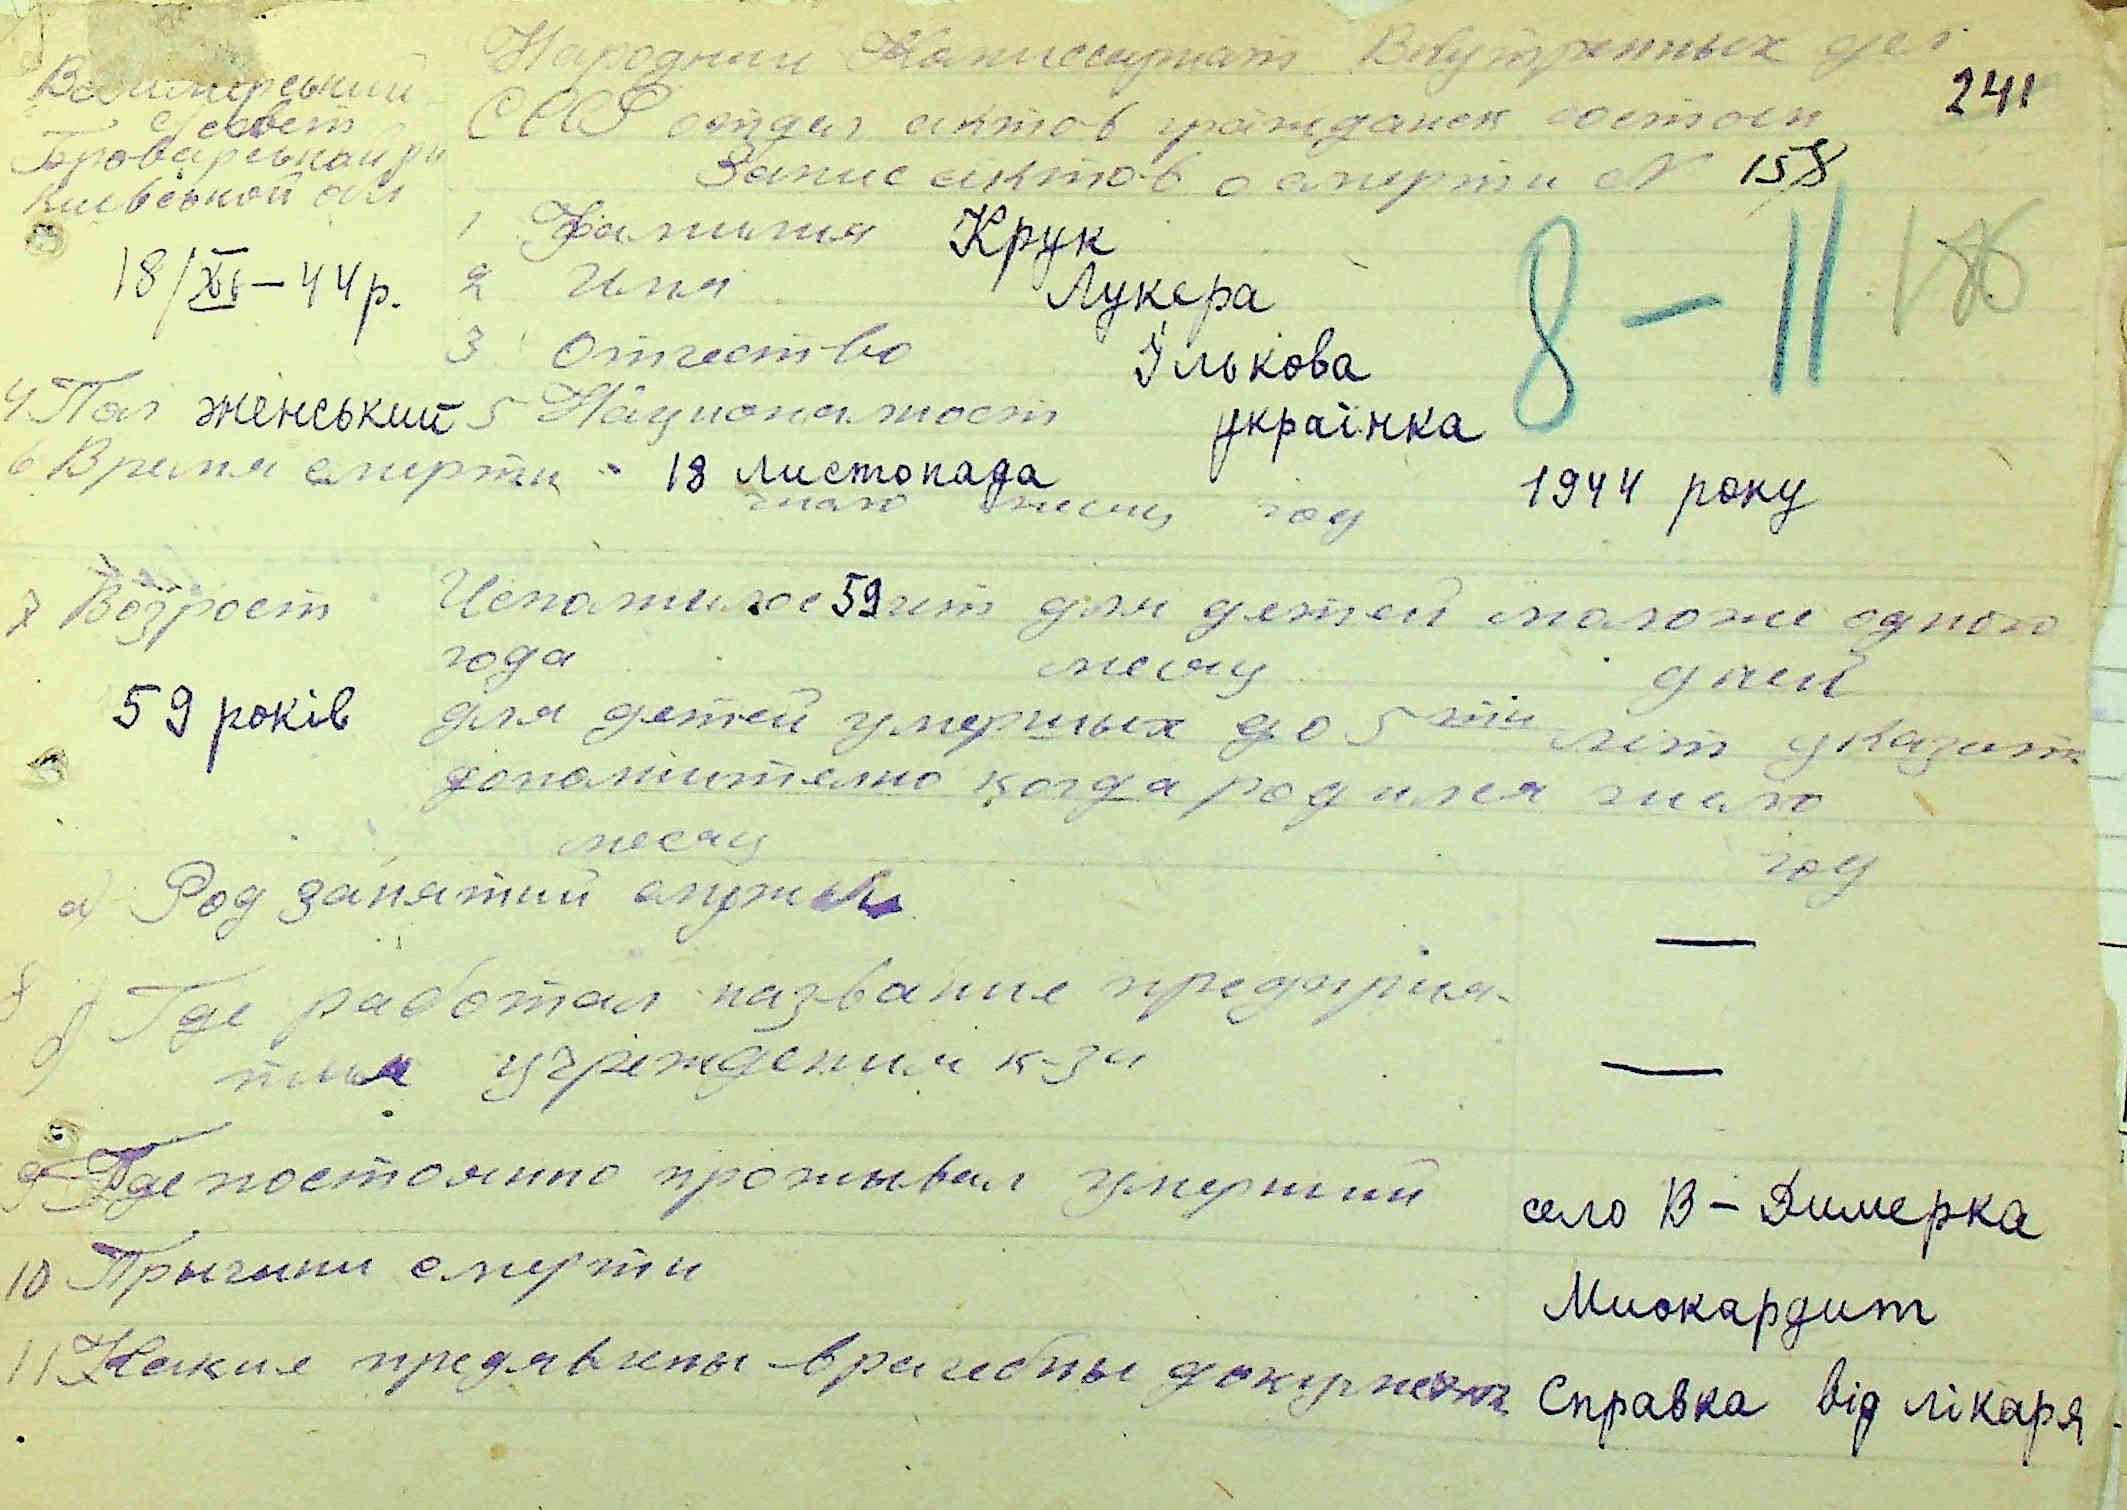 Народнии Комиссариат Внутренных дел
241
СССР отдел актов гражданск состоен
Запис актов о смерти N 158
с/совет
Броварськой рн
Киевськой обл
18/XI – 44 р.
1 Фамилия Крук
2 Имя Лукера
3 Отчество Ількова
8 – 11
4 Пол женський 5 Националност українка
6 Время смерти 18 листопада 1944 року
число месяц год
7 Возрост Исполнилос 59 лет для детей моложе одного
года месяц дней
59 років
для детей умерших до 5 ти лет указат
дополнително когда родился число
месяц год
а) Род занятий службы —
8
б) Где работал название предприя-
тия учреждения к-за —
9 Где постоянно проживал умерший село В – Димерка
10 Прычини смерти Миокардит
11 Какие предявлены врачебны документи Справка від лікаря